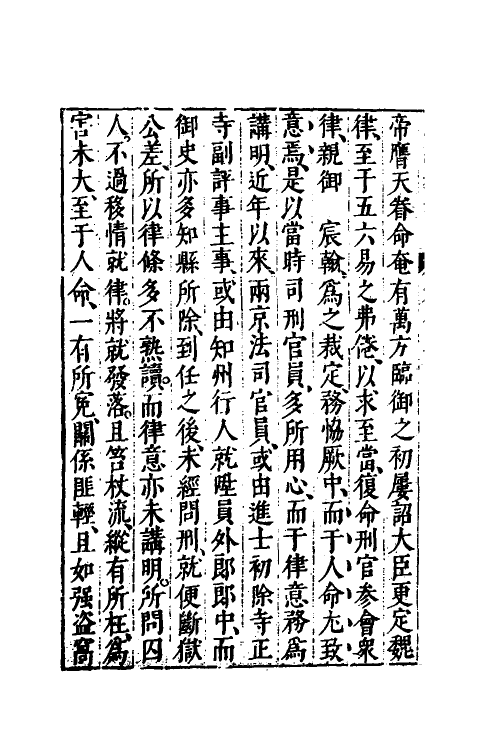 帝膺天眷命奄有萬方臨御之初屢詔大臣更定魏
律、至于五六易之弗倦、以求至當、復命刑官參會衆
律、親御　宸翰、爲之裁定、務恊厥中、而于人命尤致
意焉、是以當時司刑官員、多所用心、而于律意務爲
講明、近年以來、兩京法司官員、或由進士初除寺正
寺副評事主事、或由知州行人就陞員外郎郎中、而
御史亦多知縣所除、到任之後、未經問刑、就便斷獄
公差、所以律條多不熟讀。而律意亦未講明。所問囚
人。不過移情就律。將就發落。且笞杖流、縱有所枉、爲
害未大、至于人命、一有所冤、關係匪輕、且如强盗窩